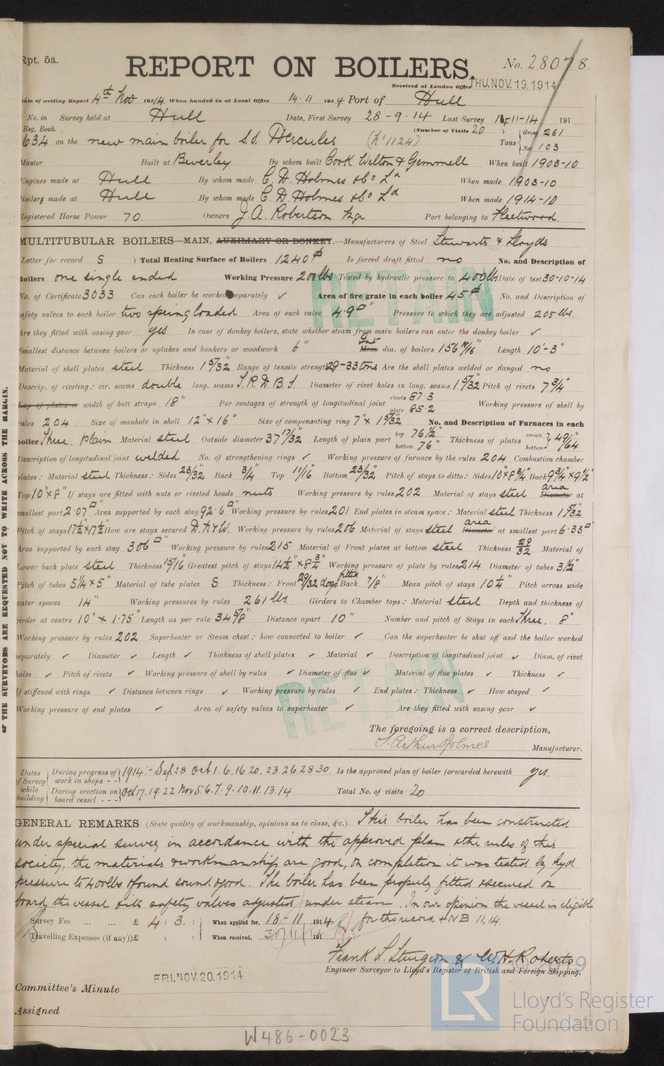 Rpt. 5a.
REPORT ON BOILERS.
No. 28078.
Received at London Office THU.NOV.19.1914
Date of writing Report 4th Nov 1914 When handed in at Local Office 14.11 1914 Port of Hull
No. in Survey held at Hull Date, First Survey 28-9-14 Last Survey 14-11-14 191
Reg. Book. (Number of Visits 20
634 on the new main boiler for S.S. Hercules (H1124) Tons Gross 261 Net 103
Master Built at Beverley By whom built Cook Welton & Gemmell When built 1903-10
Engines made at Hull By whom made C. D. Holmes & Co Ld When made 1903-10
Boilers made at Hull By whom made C. D. Holmes & Co Ld When made 1914-10
Registered Horse Power 70. Owners J. A. Robertson Port belonging to Fleetwood
MULTITUBULAR BOILERS—MAIN, AUXILIARY OR DONKEY.—Manufacturers of Steel Stewarts & Lloyds
Letter for record S Total Heating Surface of Boilers 1240 Is forced draft fitted no No. and Description of
Boilers one single ended Working Pressure 200lbs Tested by hydraulic pressure to 400lbs Date of test 30-10-14
No. of Certificate 3033 Can each boiler be worked separately ✓ Area of fire grate in each boiler 45 No. and Description of
safety valves to each boiler two spring loaded Area of each valve 4.9 Pressure to which they are adjusted 205 lbs.
Are they fitted with easing gear yes In case of donkey boilers, state whether steam from main boilers can enter the donkey boiler ✓
Smallest distance between boilers or uptakes and bunkers or woodwork 6" dia. of boilers 156 Length 10'-3"
Material of shell plates steel Thickness 1 5/32 Range of tensile strength 29-33 tons Are the shell plates welded or flanged no
Descrip. of riveting: cir. seams double long. seams T.R.D.B.S. Diameter of rivet holes in long. seams 1 5/32 Pitch of rivets 7 3/4"
Lap of plates or width of butt straps 18" Per centages of strength of longitudinal joint rivets 87.3 plate 85.2 Working pressure of shell by
rules 204 Size of manhole in shell 12" x 16" Size of compensating ring 7" x 1 5/32 No. and Description of Furnaces in each
boiler Three, plain Material steel Outside diameter 37 17/32 Length of plain part top 76 1/2" bottom 76" Thickness of plates crown bottom 49/64
Description of longitudinal joint welded No. of strengthening rings ✓ Working pressure of furnace by the rules 204 Combustion chamber
plates: Material steel Thickness: Sides 23/32 Back 3/4 Top 11/16 Bottom 23/32 Pitch of stays to ditto: Sides 10" x 8 3/4" Back 9 3/4" x 9 1/2"
Top 10" x 8" If stays are fitted with nuts or riveted heads nuts Working pressure by rules 202 Material of stays steel area Diameter at
smallest part 2.07 Area supported by each stay 92.6 Working pressure by rules 201 End plates in steam space: Material steel Thickness
Pitch of stays 17 1/2 x 17 1/2 How are stays secured D.N.&W. Working pressure by rules 206 Material of stays steel area Diameter at smallest part 6.33
Area supported by each stay 306 Working pressure by rules 215 Material of Front plates at bottom steel Thickness Material of
Lower back plate steel Thickness 15/16 Greatest pitch of stays Working pressure of plate by rules 214 Diameter of tubes 3 1/2"
Pitch of tubes 5 1/4 x 5" Material of tube plates S Thickness: Front 29/32 Back 7/8" Mean pitch of stays 10 1/4" Pitch across wide
water spaces 14" Working pressures by rules 261 lbs. Girders to Chamber tops: Material steel Depth and thickness of
girder at centre 10" x 1.75" Length as per rule 34 5/8" Distance apart 10" Number and pitch of Stays in each Three. 8"
Working pressure by rules 202 Superheater or Steam chest; how connected to boiler ✓ Can the superheater be shut off and the boiler worked
separately ✓ Diameter ✓ Length ✓ Thickness of shell plates ✓ Material ✓ Description of longitudinal joint ✓ Diam. of rivet
holes ✓ Pitch of rivets ✓ Working pressure of shell by rules ✓ Diameter of flue ✓ Material of flue plates ✓ Thickness ✓
If stiffened with rings ✓ Distance between rings ✓ Working pressure by rules ✓ End plates: Thickness ✓ How stayed ✓
Working pressure of end plates ✓ Area of safety valves to superheater ✓ Are they fitted with easing gear ✓
RETAIN
RETAIN
The foregoing is a correct description,
Manufacturer.
Dates of Survey while building
During progress of work in shops - - 1914:- Sep. 28 Oct 1. 6. 16. 20. 23. 26. 28. 30 Is the approved plan of boiler forwarded herewith yes
During erection on board vessel - - - Oct 17. 19. 22 Nov 5. 6. 7. 9. 10. 11. 13. 14 Total No. of visits 20
GENERAL REMARKS (State quality of workmanship, opinions as to class, &c.) This boiler has been constructed
under special survey in accordance with the approved plan & the rules of this
society, the materials & workmanship are good, on completion it was tested by hyd
pressure to 400lbs & found sound & good. The boiler has been properly fitted & secured on
board the vessel & its safety valves adjusted under steam. In our opinion the vessel is eligible
for the record + NB 11.14.
Survey Fee ... ... £ 4 : 3 : When applied for, 18-11 1914
Travelling Expenses (if any) £ : : When received, 191
Frank L. Sturgeon & W. H. Roberts
Engineer Surveyor to Lloyd's Register of British and Foreign Shipping.
FRI.NOV.20.1914
Committee's Minute
Assigned
W486-0023
OF THE SURVEYORS ARE REQUESTED NOT TO WRITE ACROSS THE MARGIN.
LR
Lloyd's Register
Foundation